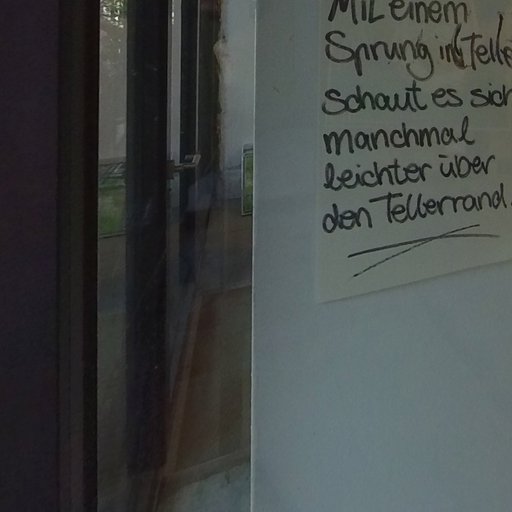 Mit einem
Sprung im Telle
schaut es sich
manchmal
leichter über
den Tellerrand.